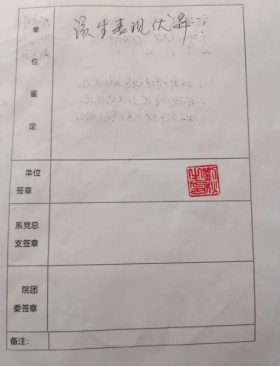 单位鉴定
该生表现优异
单位
签章
系党总
支签章
院团
委签章
备注：